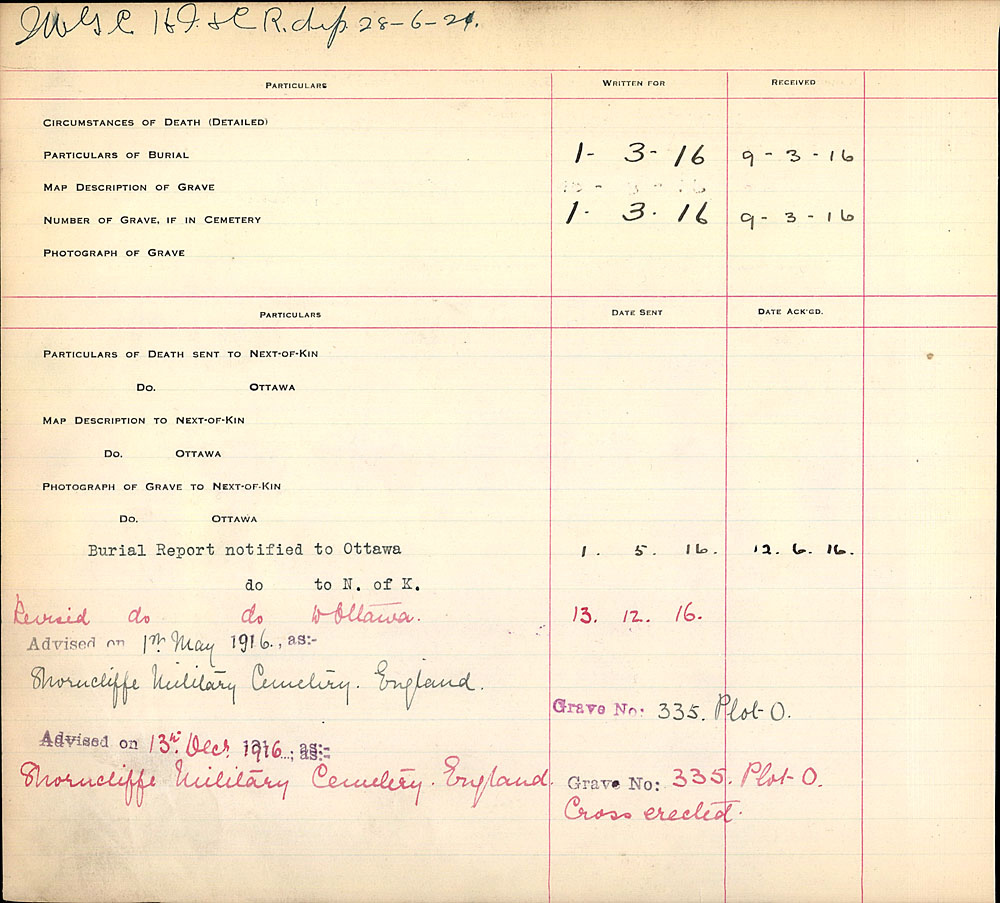 28-6-21.
PARTICULARS WRITTEN FOR RECEIVED
CIRCUMSTANCES OF DEATH (DETAILED)
PARTICULARS OF BURIAL 1- 3- 16 9-3-16
MAP DESCRIPTION OF GRAVE
NUMBER OF GRAVE, IF IN CEMETERY 1- 3. 16 9-3-16
PHOTOGRAPH OF GRAVE
PARTICULARS DATE SENT DATE ACK'GD.
PARTICULARS OF DEATH SENT TO NEXT-OF-KIN
DO. OTTAWA
MAP DESCRIPTION TO NEXT-OF-KIN
DO. OTTAWA
PHOTOGRAPH OF GRAVE TO NEXT-OF-KIN
DO. OTTAWA
Burial Report notified to Ottawa 1. 5. 16. 12. 6. 16.
do to N. of K.
Revised do do to Ottawa. 13. 12. 16.
Advised on 1st May 1916., as:-
Shorncliffe Military Cemetery. England.
Grave No: 335. Plot O.
Advised on 13th Decr. 1916..., as:-
Shorncliffe Military Cemetery. England. Grave No: 335. Plot O.
Cross erected.